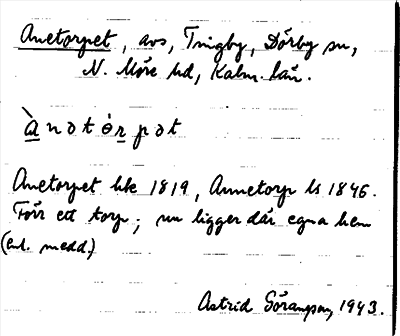 Anetorpet, avs, Tingby, Dörby sn,
N. Möre hd, Kalm. län.
ànətòrpət
Anetorpet hfk 1819, Annetorp ls 1846.
Förr ett torp; nu ligger där egna hem
(enl. medd.)
Astrid Göransson, 1943.